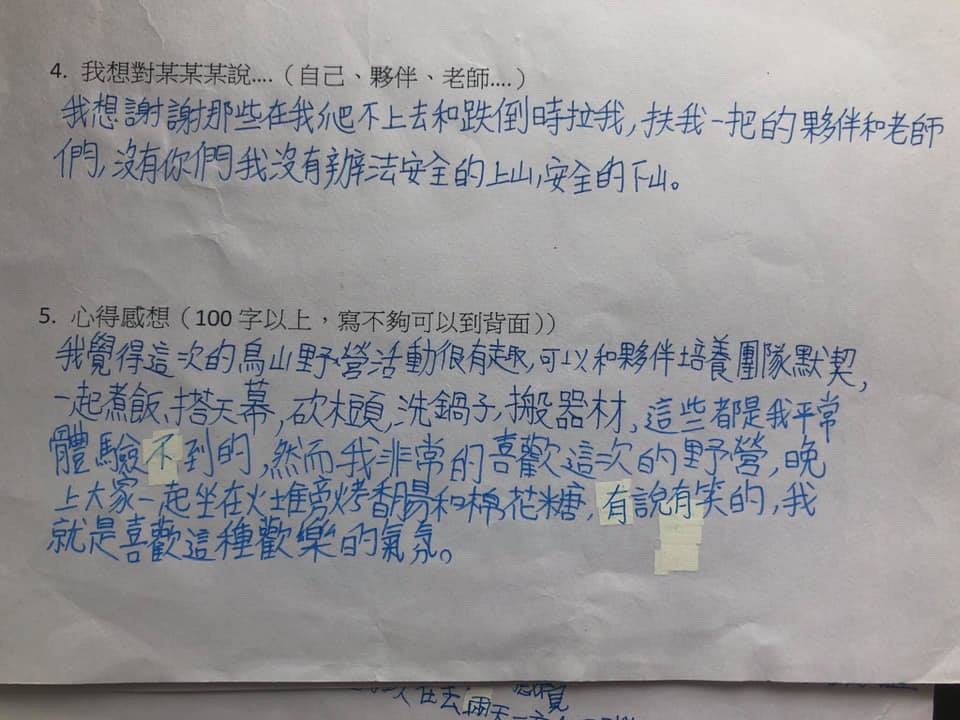 4. 我想對某某某說....（自己、夥伴、老師....）
我想謝謝那些在我爬不上去和跌倒時拉我,扶我一把的夥伴和老師
們,沒有你們我沒有辦法安全的上山,安全的下山。
5. 心得感想（100 字以上，寫不夠可以到背面））
我覺得這次的鳥山野營活動很有趣,可以和夥伴培養團隊默契,
一起煮飯、搭天幕,砍木頭,洗鍋子,搬器材,這些都是我平常
體驗不到的,然而我非常的喜歡這次的野營,晚
上大家一起坐在火堆旁烤香腸和棉花糖,有說有笑的,我
就是喜歡這種歡樂的氣氛。
在去兩天